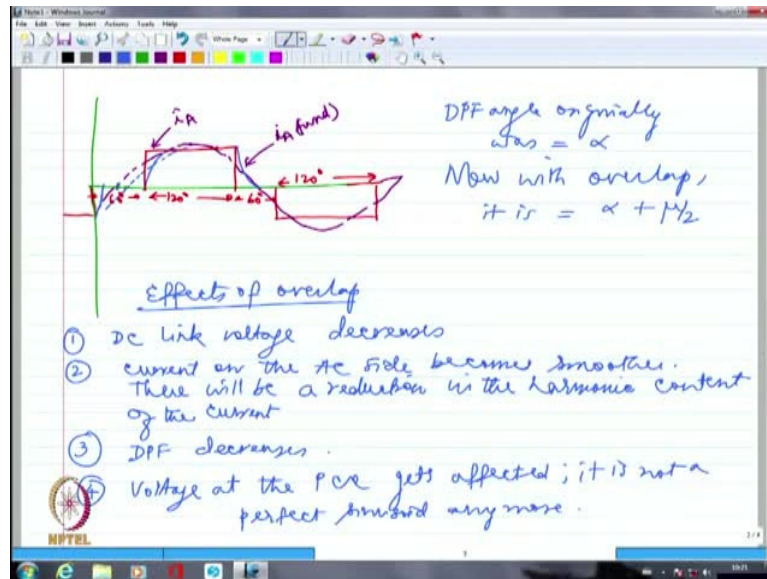 Note1 - Windows Journal
File Edit View Insert Actions Tools Help
Whole Page
iA
iA (fund)
60° ←120° → 60°
←120° →
DPF angle originally
was = α
Now with overlap,
it is = α + μ/2
Effects of overlap
① DC Link voltage decreases
② current on the AC side becomes smoother.
There will be a reduction in the harmonic content
of the current
③ DPF decreases.
④ Voltage at the PCC gets affected; it is not a
perfect sinusoid any more.
NPTEL